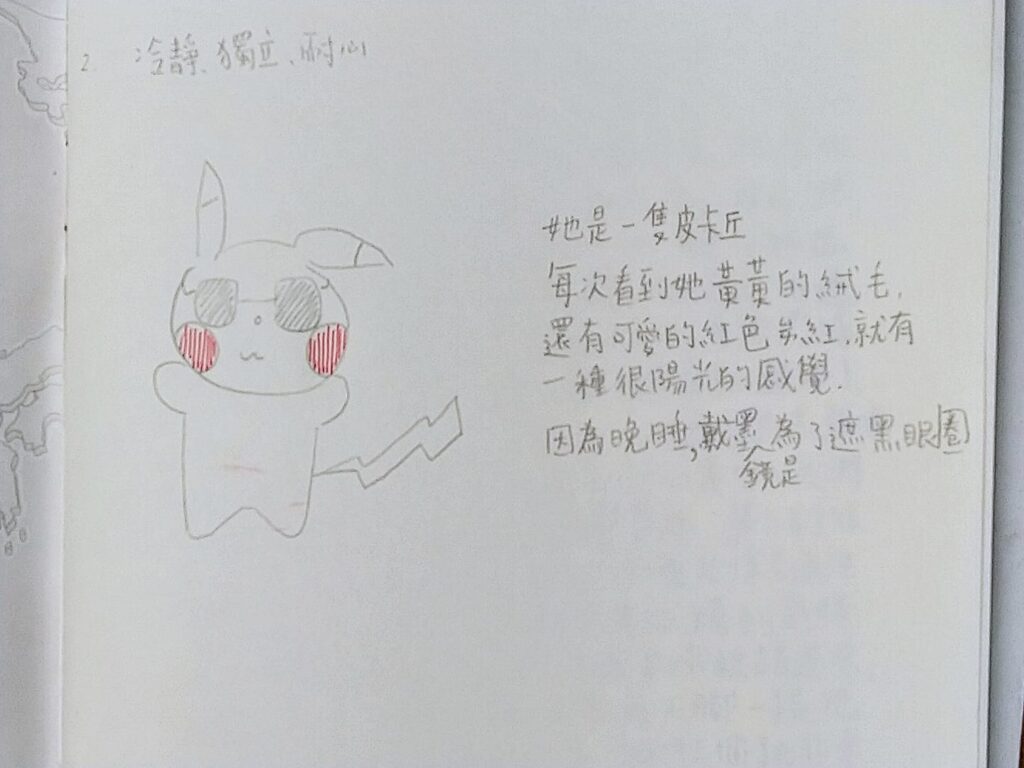 2. 冷靜、獨立、耐心
她是一隻皮卡丘
每次看到她黃黃的絨毛,
還有可愛的紅色腮紅,就有
一種很陽光的感覺.
因為晚睡,戴墨鏡是為了遮黑眼圈